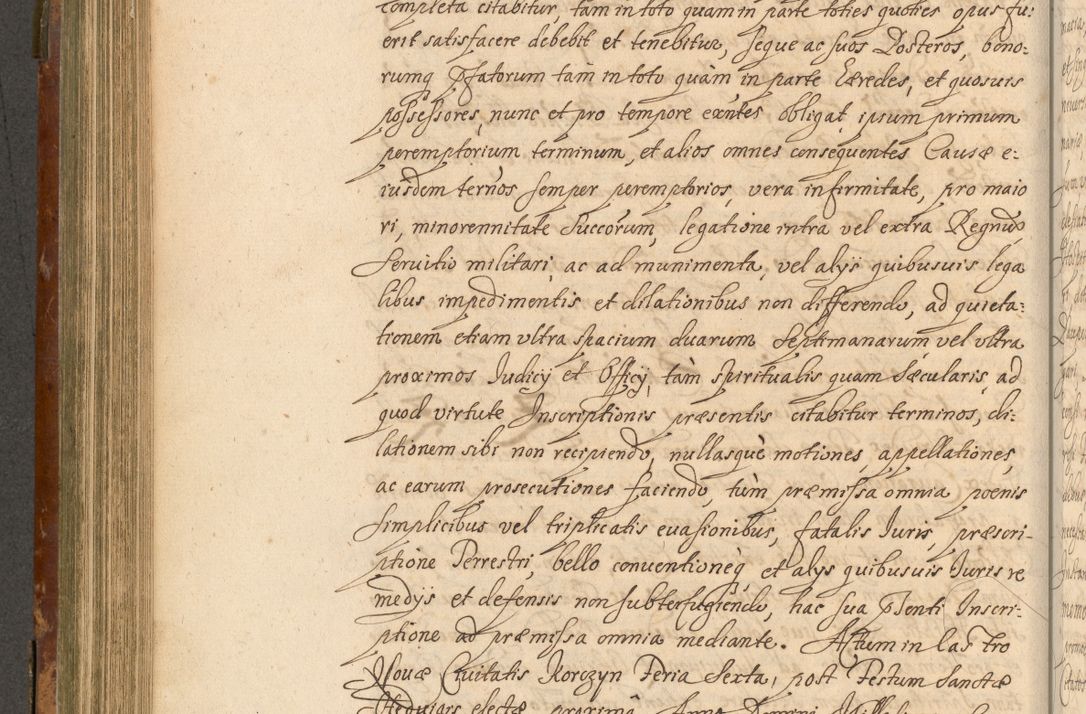 completa citabitur, tam in toto quam in parte toties quoties opus fu:
erit satisfacere debebit et tenebitur, seque ac suos Posteros, bono:
rumq pfatorum tam in toto quàm in parte Hæredes, et quosuis
possessores, nunc et pro tempore exntes obligat, ipsum primum
peremptorium terminum, et alios omnes consequentes Causæ e:
iusdem ternos semper peremptorios, vera infirmitate, pro maio
ri, minorennitate Succorum, legatione intra vel extra Regnum
Seruitio militari, ac ad munimenta, vel alys quibusuis lega
libus impedimentis et dilationibus non differendo, ad quieta:
tionem etiam vltra spacium duarum Septimanarum vel vltra
proximos Iudicÿ et Officÿ, tàm spiritualis quam sæcularis, ad
quod virtute Inscriptionis præsentis citabitur terminos, di:
lationem sibi non recipiendo, nullasquè motiones, appellationes,
ac earum prosecutiones faciendo, tùm præmissa omnia pœnis
simplicibus vel triplicatis euasionibus, fatalis Iuris, præscri-
ptione Terrestri, bello conventioneq et alys quibusuis Iuris re
medÿs et defensis non subterfugiendo, hac sua pSenti Inscri:
ptione ad præmissa omnia mediante. Actum in Castro
Nouæ Ciuitatis Korczyn Feria Sexta, post Festum Sanctæ
Heduigis electæ proxima Anno Domini